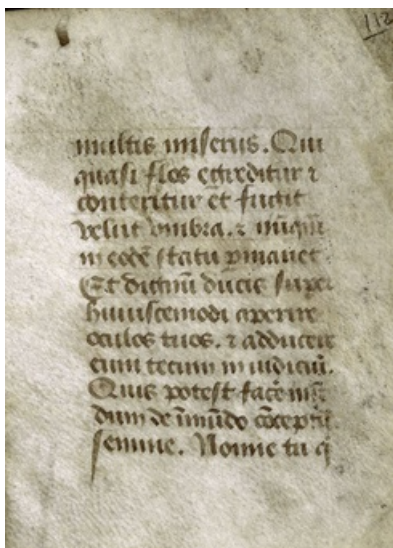 112
multis miserus. Qui
quasi flos egreditur ⁊
conteritur et fugit
velut umbra. ⁊ nūquā
in eodē statu ꝑmanet
Et dignū ducis super
huiuscemodi aperire
oculos tuos. ⁊ adducere
eum tecum in iudiciū.
Quis potest facē mū
dum de īmūdo cōceptū
semine. Nonne tu q̄